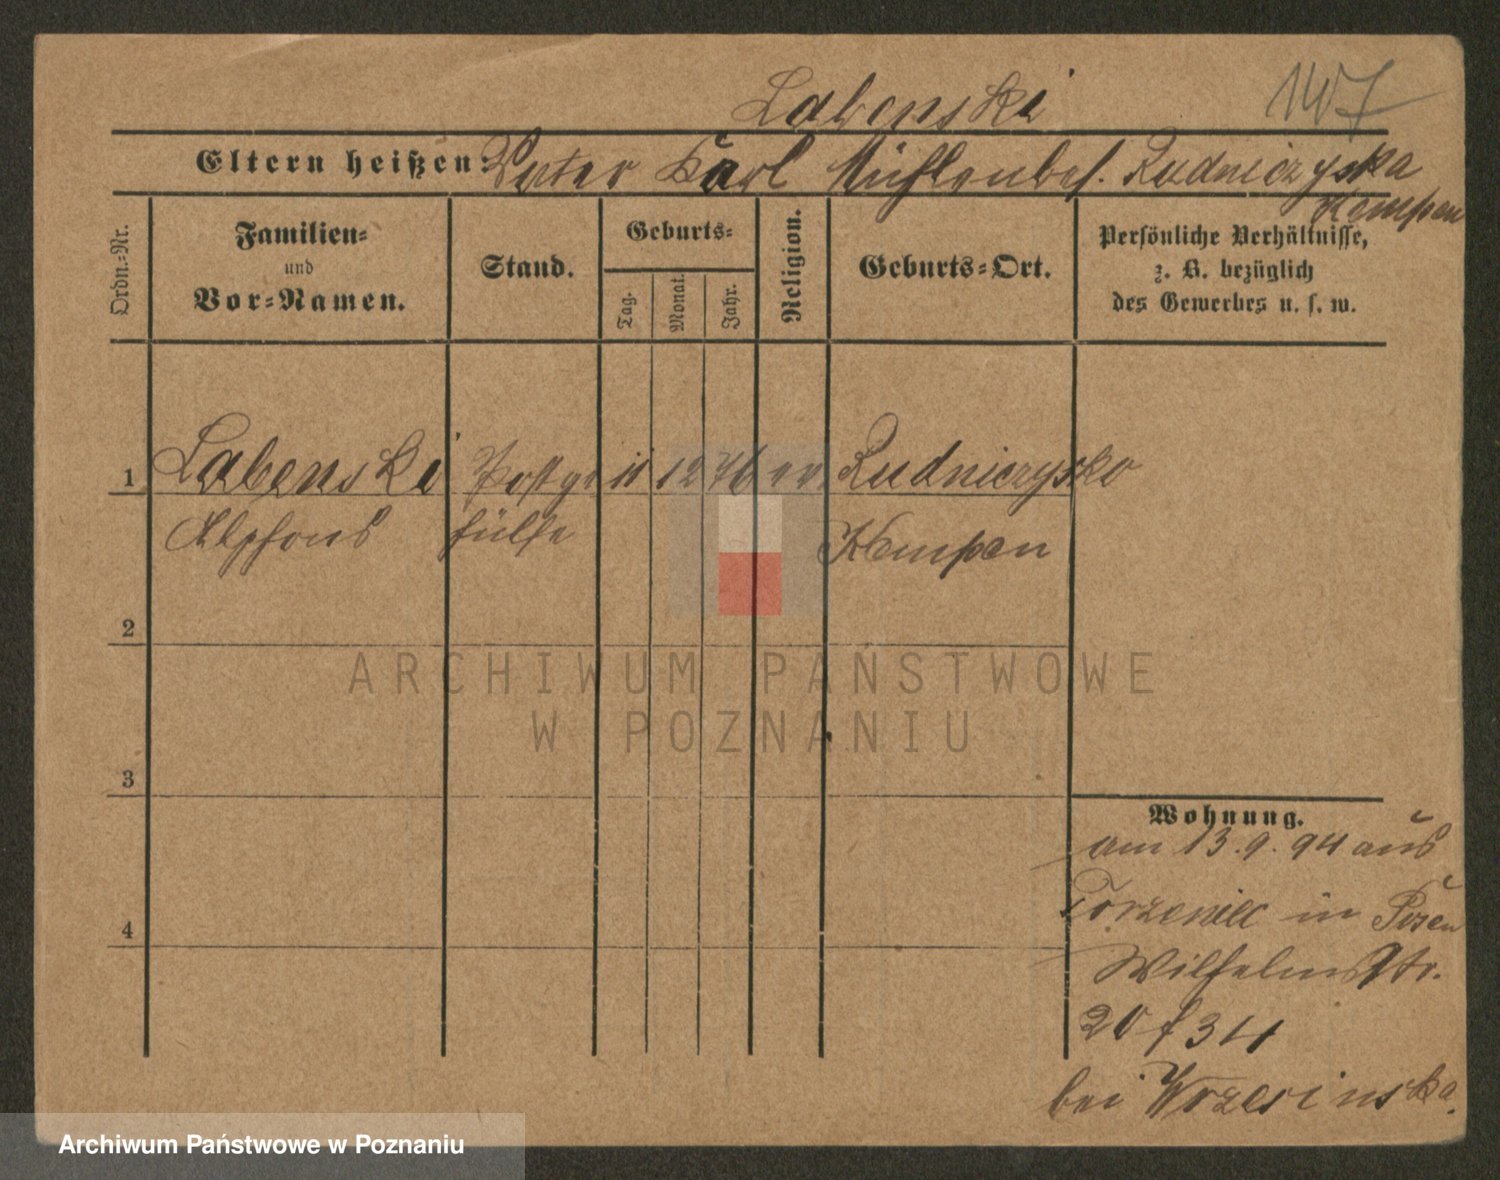 147
Labenski
Eltern heißen: Vater Karl Mühlenbes. Rudniczyska
Kempen
Ordn.-Nr.
Familien-
und
Vor-Namen.
Stand.
Geburts-
Tag.
Monat.
Jahr.
Religion.
Geburts-Ort.
Persönliche Verhältnisse,
z. B. bezüglich
des Gewerbes u. s. w.
1 Labenski Postge 11 12 76 ev. Rudniczysko
Alphons hülfe Kempen
2
3
4
Wohnung.
am 13.9.94 aus
Torzeniec in Posen
Wilhelmstr.
20 f 34
bei Wrzesinska.
ARCHIWUM PAŃSTWOWE
W POZNANIU
Archiwum Państwowe w Poznaniu